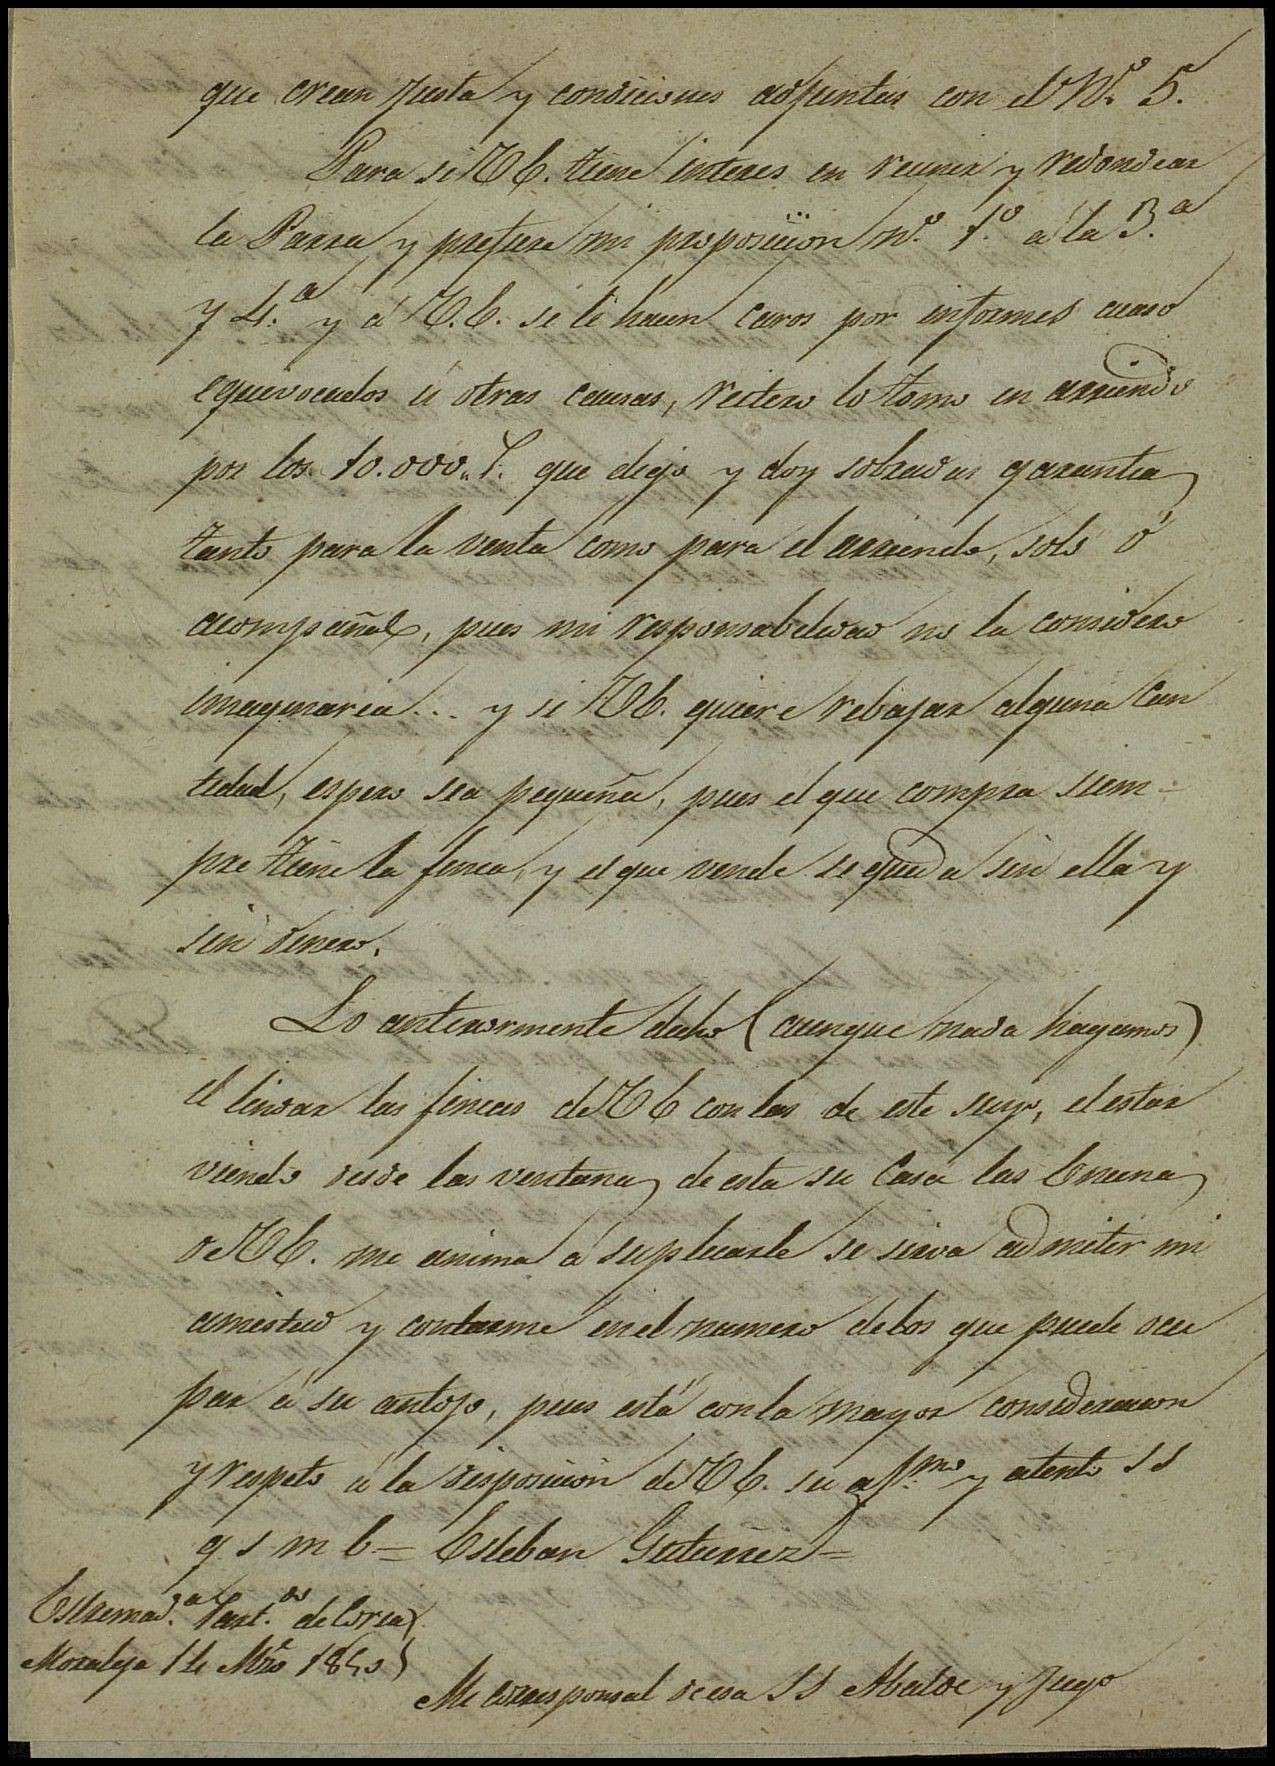 que crean justa y condiciones adjuntas con el Nº. 5.
Para si VE. tiene interes en reunir y redondear
la Parra y prefiere mi proposicion nº. 1º. a la 3.ª
y 4.ª y á V.E. se le hacen caros por informes acaso
equivocados ú otras causas, reitero lo tomo en arriendo
por los 10.000. que dejo y doy sobradas garantias
tanto para la venta como para el arriendo, solo ó
acompañado, pues mi responsabilidad no la considero
imaginaria... y si VE. quiere rebajar alguna can
tidad, espero sea pequeña, pues el que compra siem-
pre tiene la finca, y el que vende se queda sin ella y
sin dinero.
Lo anteriormente dicho (aunque nada hagamos)
el lindar las fincas de VE con las de este suyo, el estar
viendo desde las ventanas de esta su Casa las Encinas
de VE. me anima á suplicarle se sirva admitir mi
amistad y contarme en el numero de los que puede ocu
par á su antojo, pues está con la mayor consideracion
y respeto á la disposicion de VE. su af.mo y atento SS
q s m b = Esteban Gutierrez =
Estremad.ª Part.do de Coria
Moraleja 14 Mzo 1850
Mi corresponsal de esa SS Matoe y Juego